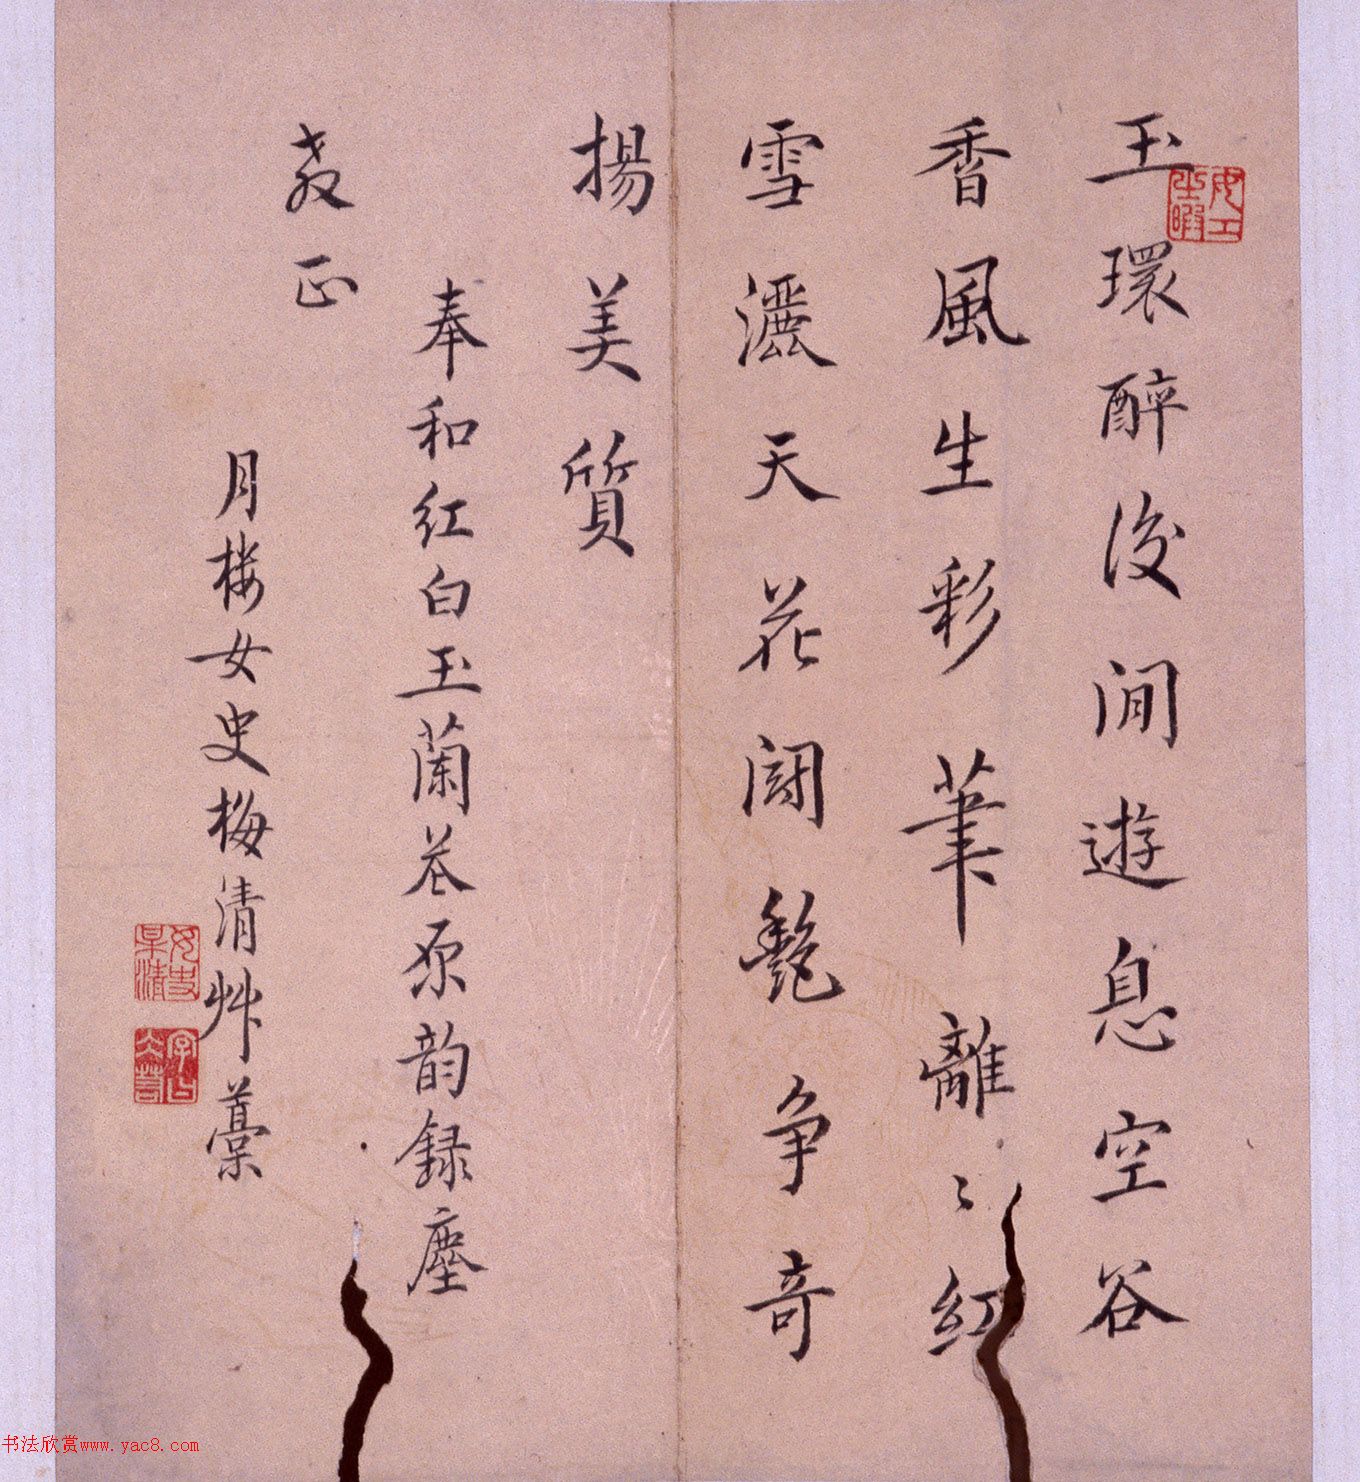 玉環醉後閒遊息空谷
香風生彩筆離〻紅
雪灑天花鬪艷争奇
揚美質
奉和红白玉蘭花原韵録塵
教正
月楼女史梅清艸藁
女史某清
书法欣赏www.yac8.com